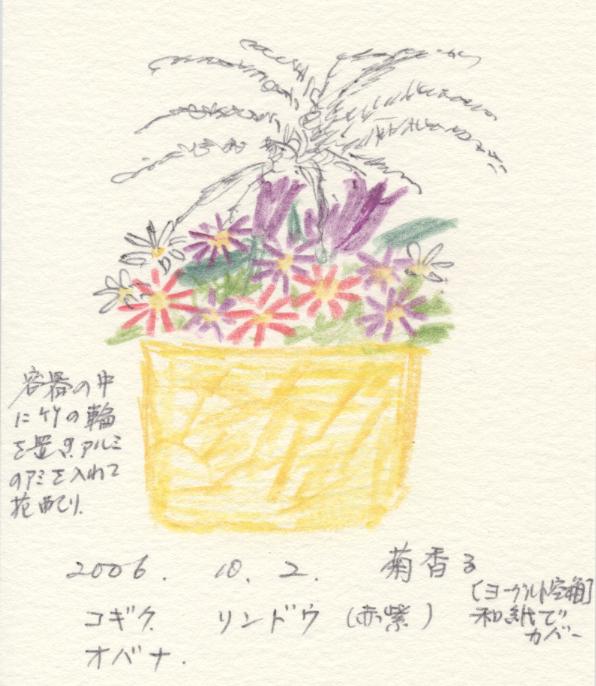 容器の中
に竹の輪
を置き、アルミ
のアミを入れて
花
2006. 10. 2. 菊香る
コギク リンドウ (赤紫)
オバナ.
[ヨーグルト空箱]
和紙で
カバー